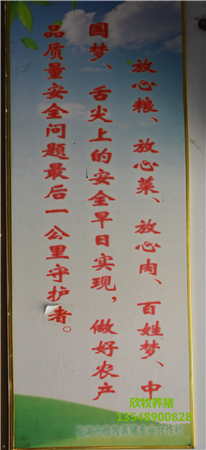 放心粮、放心菜、放心肉、百姓梦、中
国梦、舌尖上的安全早日实现，做好农产
品质量安全问题最后一公里守护者。
欣牧养猪
13548900828